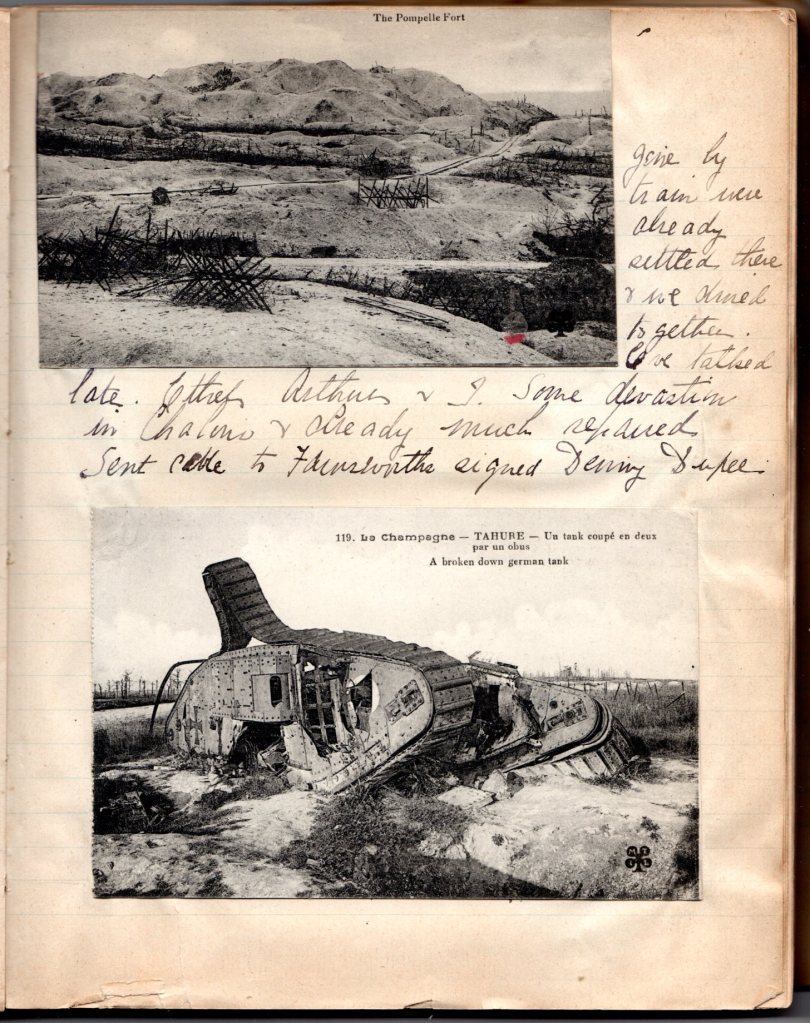 The Pompelle Fort
gone by
train were
already
settled there
& we dined
together.
We talked
late. Ethel, Arthur & I. Some devastion
in Chalons & already much repaired
Sent cable to Farnsworths signed Denny Dupee.
119. La Champagne — TAHURE — Un tank coupé en deux
par un obus
A broken down german tank